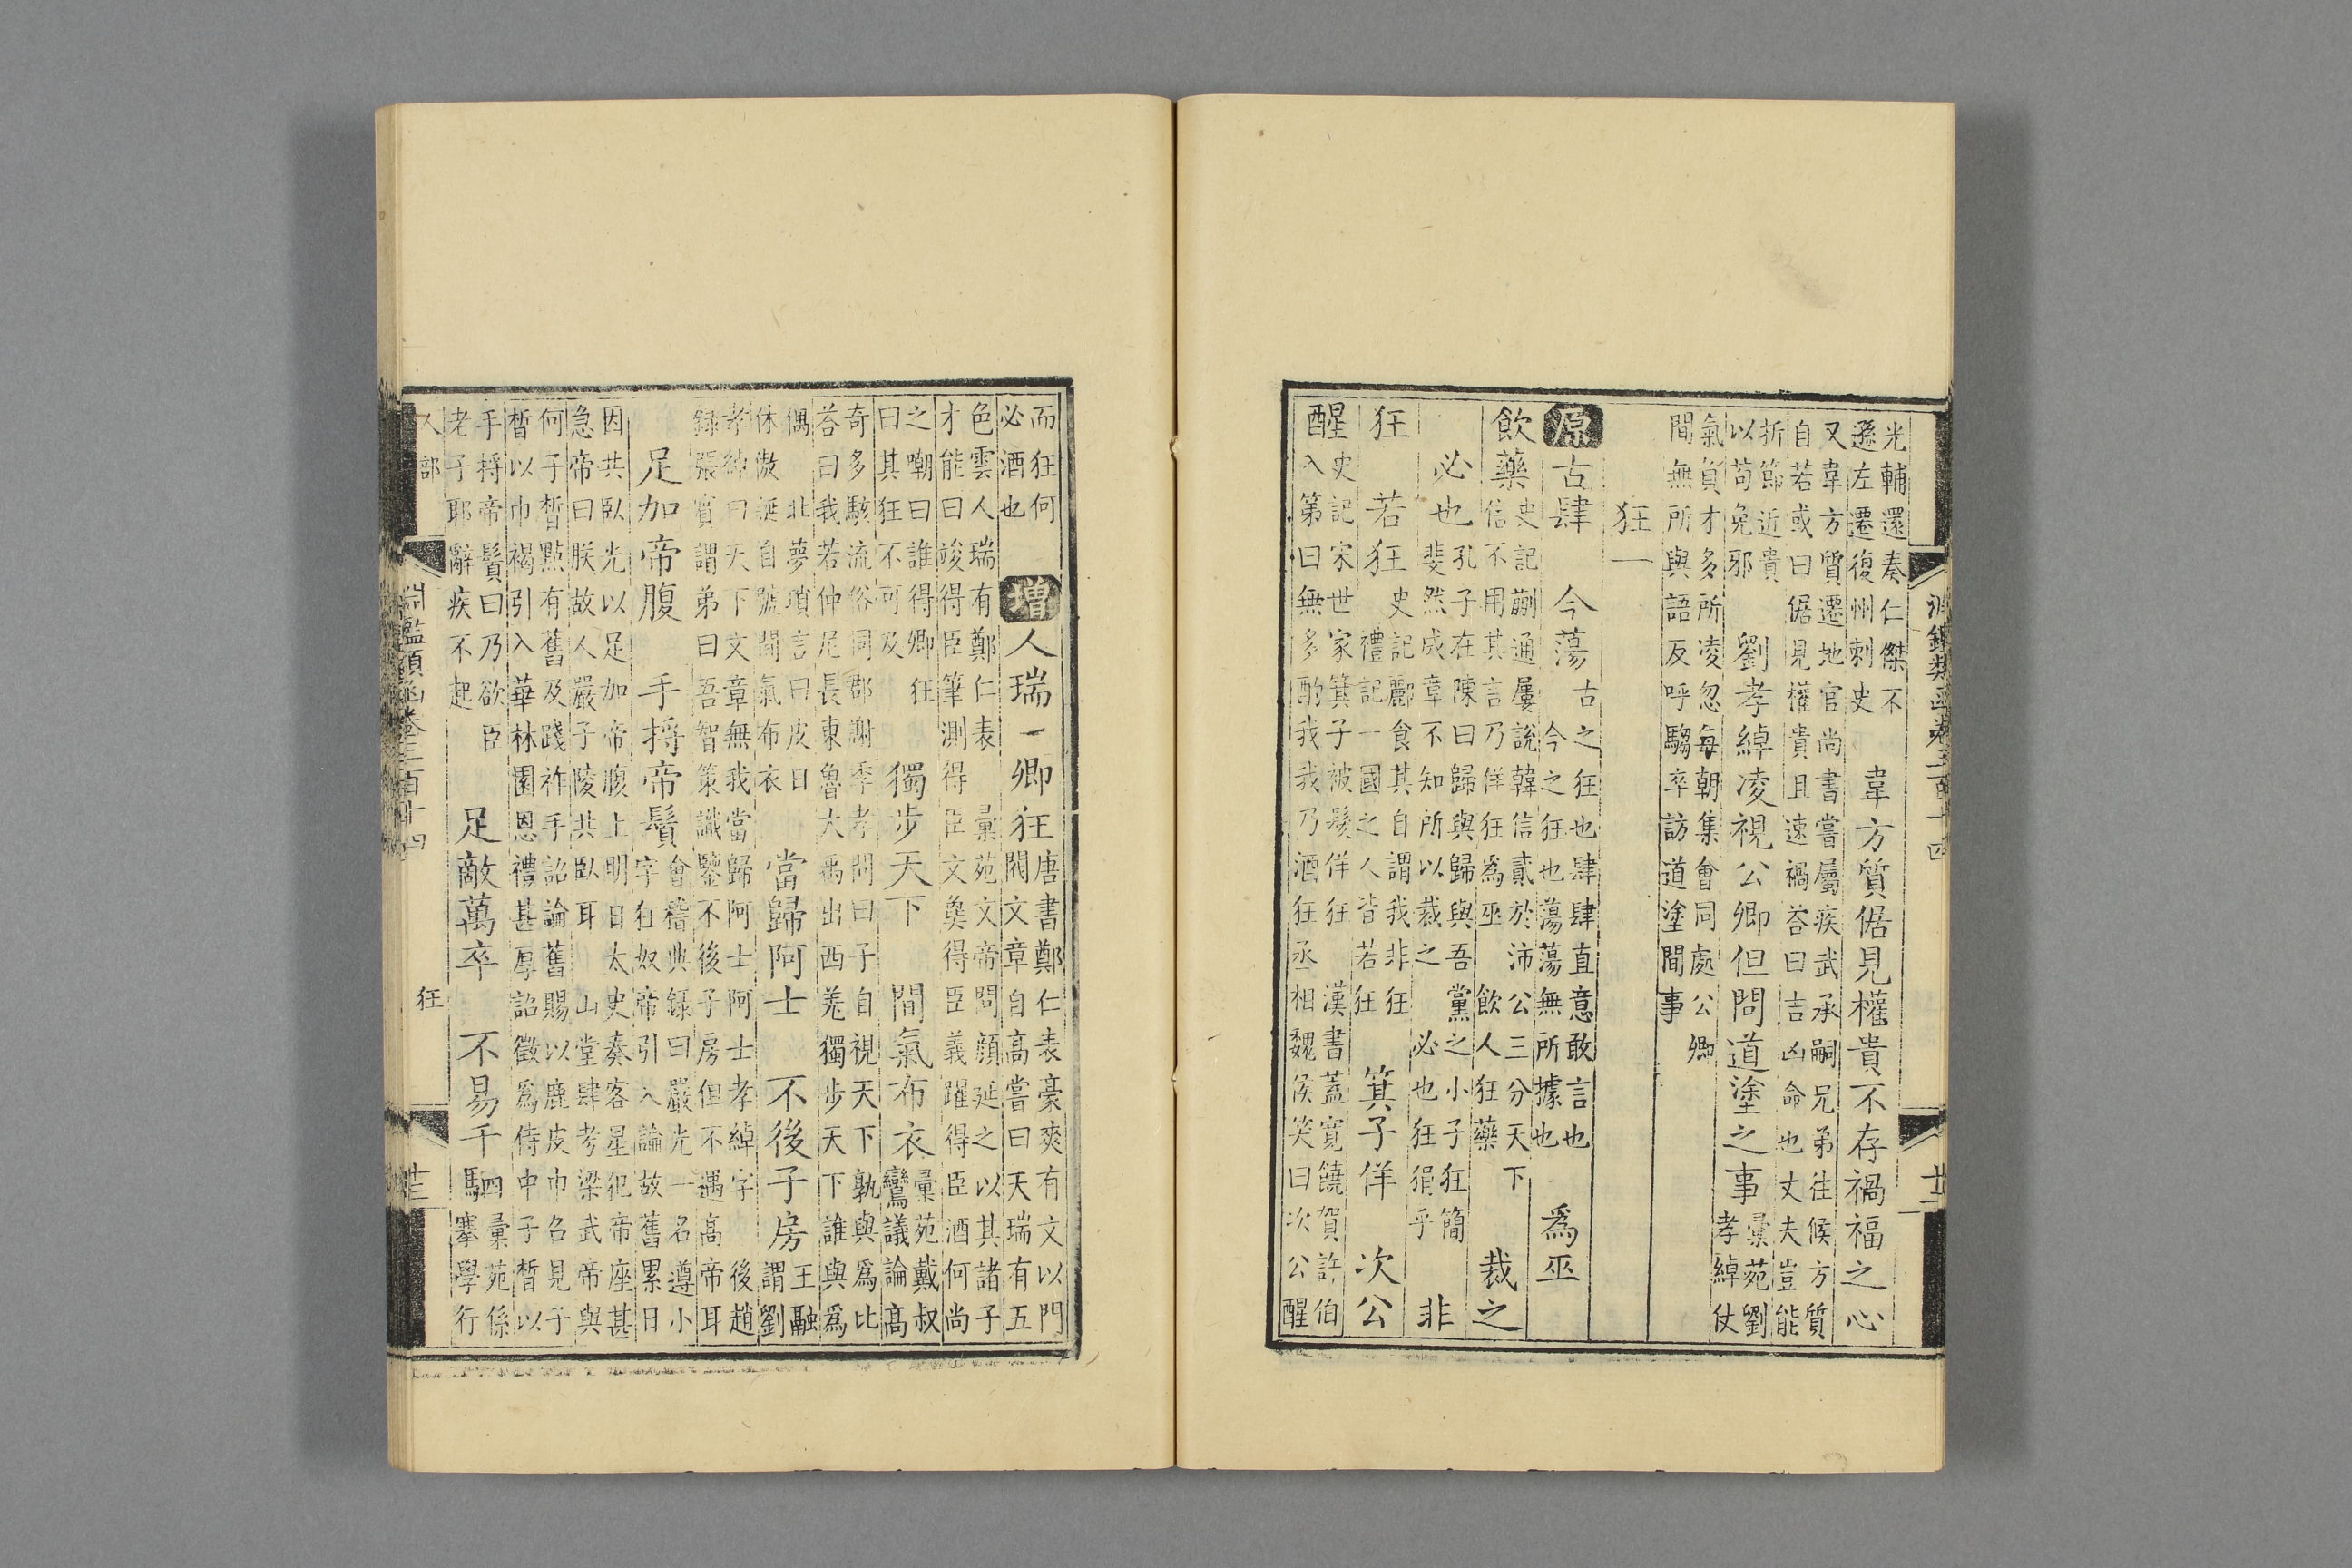 光輔還奏仁傑不
遜左遷復州刺史
韋方質倨見權貴不存禍福之心
又韋方質遷地官尚書嘗屬疾武承嗣兄弟往候方質
自若或曰倨見權貴且速禍答曰吉凶命也丈夫豈能
折節近貴
以苟免邪
劉孝綽凌視公卿但問道塗之事
彙苑劉
孝綽仗
氣負才多所凌忽每朝集會同處公卿
間無所與語反呼騶卒訪道塗間事
狂一
原
古肆
今蕩
古之狂也肆肆直意敢言也
今之狂也蕩蕩無所據也
爲巫
飲藥
史記蒯通屢說韓信貳於沛公三分天下
信不用其言乃佯狂爲巫 飲人狂藥
裁之
必也
孔子在陳曰歸與歸與吾黨之小子狂簡
斐然成章不知所以裁之 必也狂狷乎
非
狂
若狂
史記酈食其自謂我非狂
禮記一國之人皆若狂
箕子佯
次公
醒
史記宋世家箕子被髮佯狂 漢書蓋寬饒賀許伯
入第曰無多酌我我乃酒狂丞相魏侯笑曰次公醒
淵鑑類函卷三百十四
廿二
而狂何
必酒也
增
人瑞一卿狂
唐書鄭仁表豪爽有文以門
閥文章自高嘗曰天瑞有五
色雲人瑞有鄭仁表 彙苑文帝問顔延之以其諸子
才能曰竣得臣筆測得臣文㚟得臣義躍得臣酒何尚
之嘲曰誰得卿狂
曰其狂不可及
獨步天下
間氣布衣
彙苑戴叔
鸞議論高
奇多駭流俗同郡謝季孝問曰子自視天下孰與爲比
答曰我若仲尼長東魯大禹出西羌獨步天下誰與爲
偶 北夢瑣言曰皮日
休傲誕自號間氣布衣
當歸阿士
不後子房
王融
謂劉
孝綽曰天下文章無我當歸阿士阿士孝綽字 後趙
錄張賓謂弟曰吾智策識鑒不後子房但不遇高帝耳
足加帝腹
手捋帝鬚
會稽典錄曰嚴光一名遵小
字狂奴帝引入論故舊累日
因共臥光以足加帝腹上明日太史奏客星犯帝座甚
急帝曰朕故人嚴子陵共臥耳 山堂肆考梁武帝與
何子皙點有舊及踐祚手詔論舊賜以鹿皮巾召見子
皙以巾褐引入華林園恩禮甚厚詔徵爲侍中子皙以
手捋帝鬚曰乃欲臣
老子耶辭疾不起
足敵萬卒
不易千駟
彙苑係
搴學行
人部
淵鑑類函卷三百十四
狂
廿三